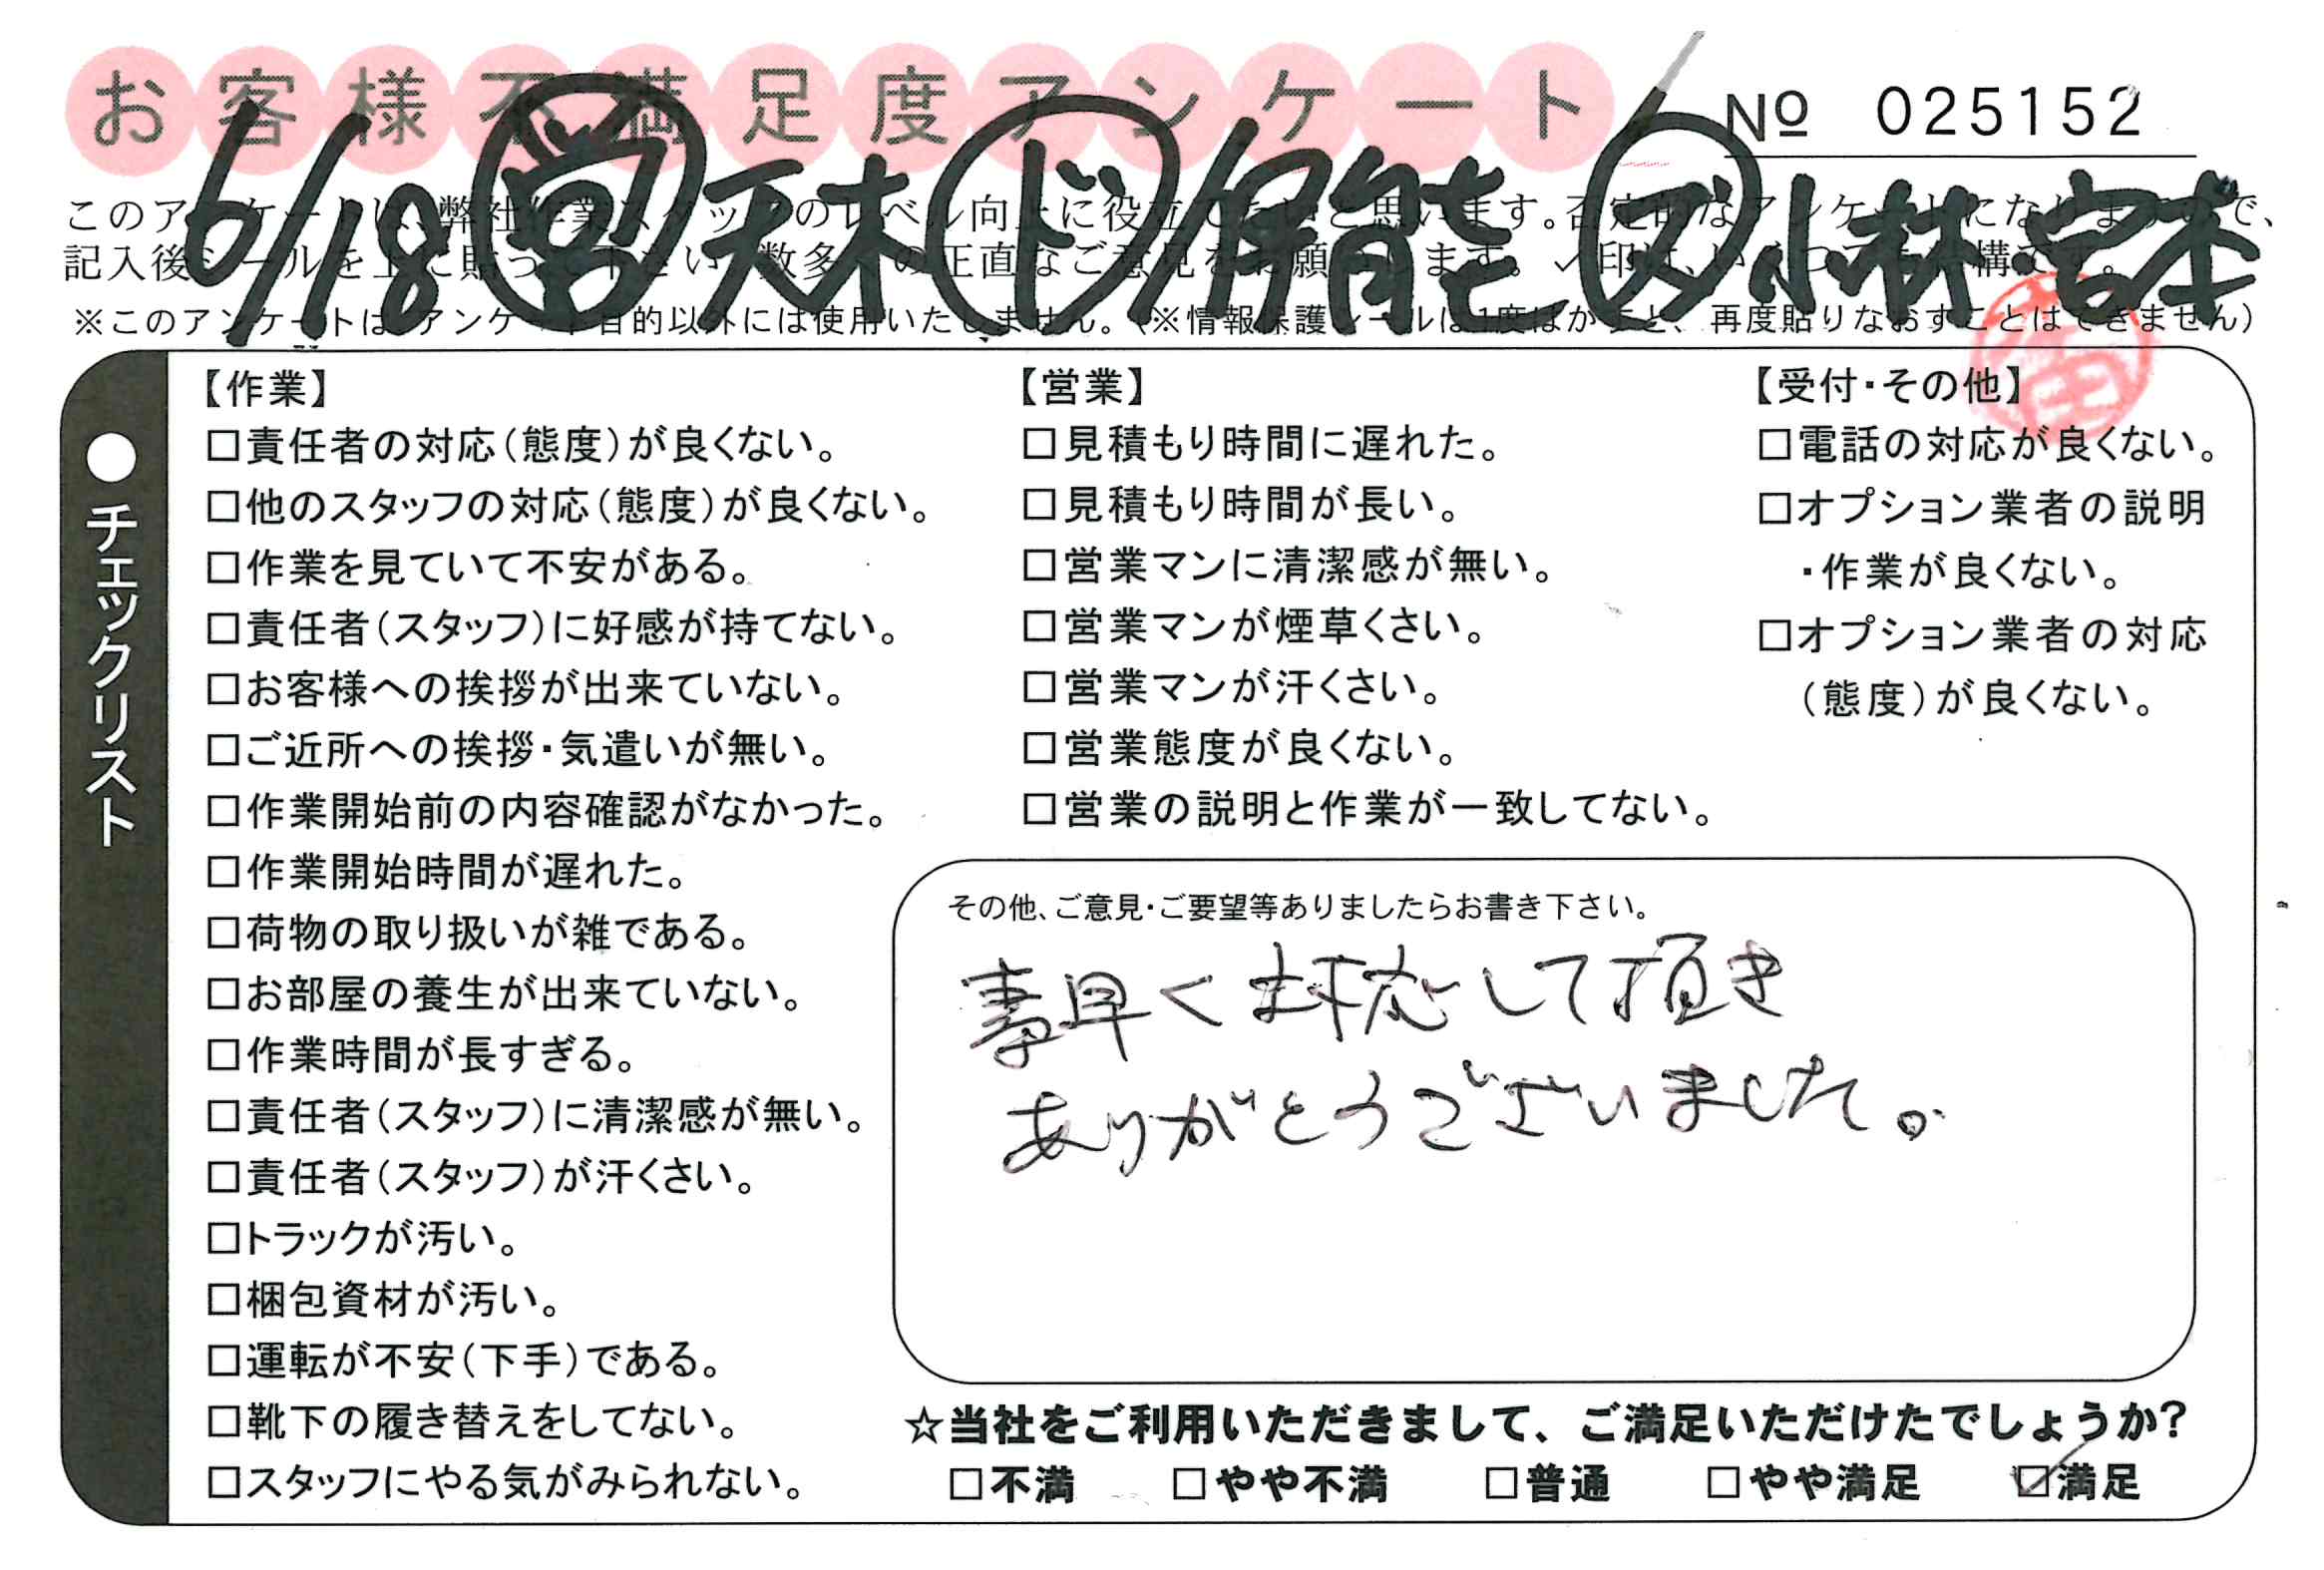 お客様不満足度アンケート
№ 025152
6/18 営 天木 ド 伊能 ス 小林 宮本
このアンケートは、弊社作業スタッフのレベル向上に役立てたいと思います。否定的なアンケートになりますので、
記入後シールを上に貼って下さい。数多くの正直なご意見をお願いします。✓印は、いくつでも結構です。
※このアンケートは、アンケート目的以外には使用いたしません。（※情報保護シールは1度はがすと、再度貼りなおすことはできません）
●チェックリスト
【作業】
□責任者の対応（態度）が良くない。
□他のスタッフの対応（態度）が良くない。
□作業を見ていて不安がある。
□責任者（スタッフ）に好感が持てない。
□お客様への挨拶が出来ていない。
□ご近所への挨拶・気遣いが無い。
□作業開始前の内容確認がなかった。
□作業開始時間が遅れた。
□荷物の取り扱いが雑である。
□お部屋の養生が出来ていない。
□作業時間が長すぎる。
□責任者（スタッフ）に清潔感が無い。
□責任者（スタッフ）が汗くさい。
□トラックが汚い。
□梱包資材が汚い。
□運転が不安（下手）である。
□靴下の履き替えをしてない。
□スタッフにやる気がみられない。
【営業】
□見積もり時間に遅れた。
□見積もり時間が長い。
□営業マンに清潔感が無い。
□営業マンが煙草くさい。
□営業マンが汗くさい。
□営業態度が良くない。
□営業の説明と作業が一致してない。
【受付・その他】
□電話の対応が良くない。
□オプション業者の説明
・作業が良くない。
□オプション業者の対応
（態度）が良くない。
その他、ご意見・ご要望等ありましたらお書き下さい。
事早く対応して頂き
ありがとうございました。
☆当社をご利用いただきまして、ご満足いただけたでしょうか?
□不満 □やや不満 □普通 □やや満足 ☑満足